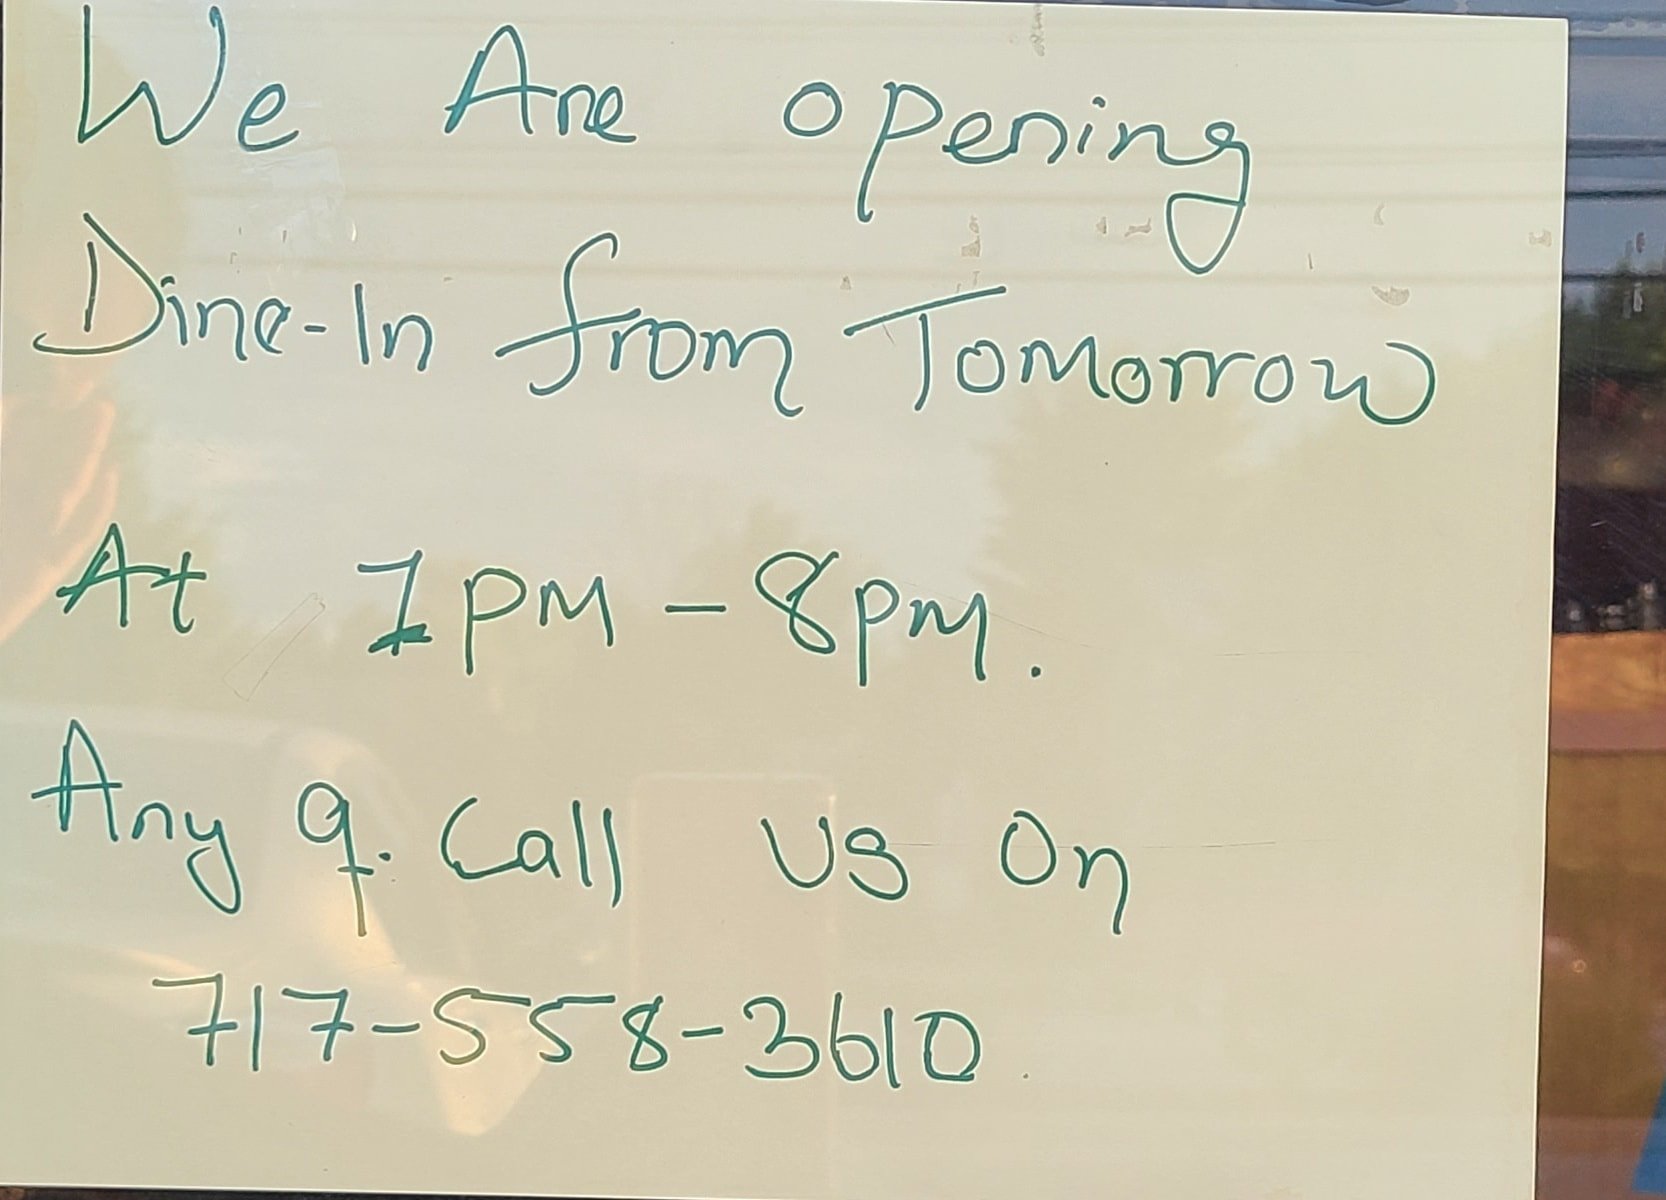 We Are opening
Dine-In from Tomorrow
At 1pm - 8pm.
Any q. Call us on
717-558-3610.